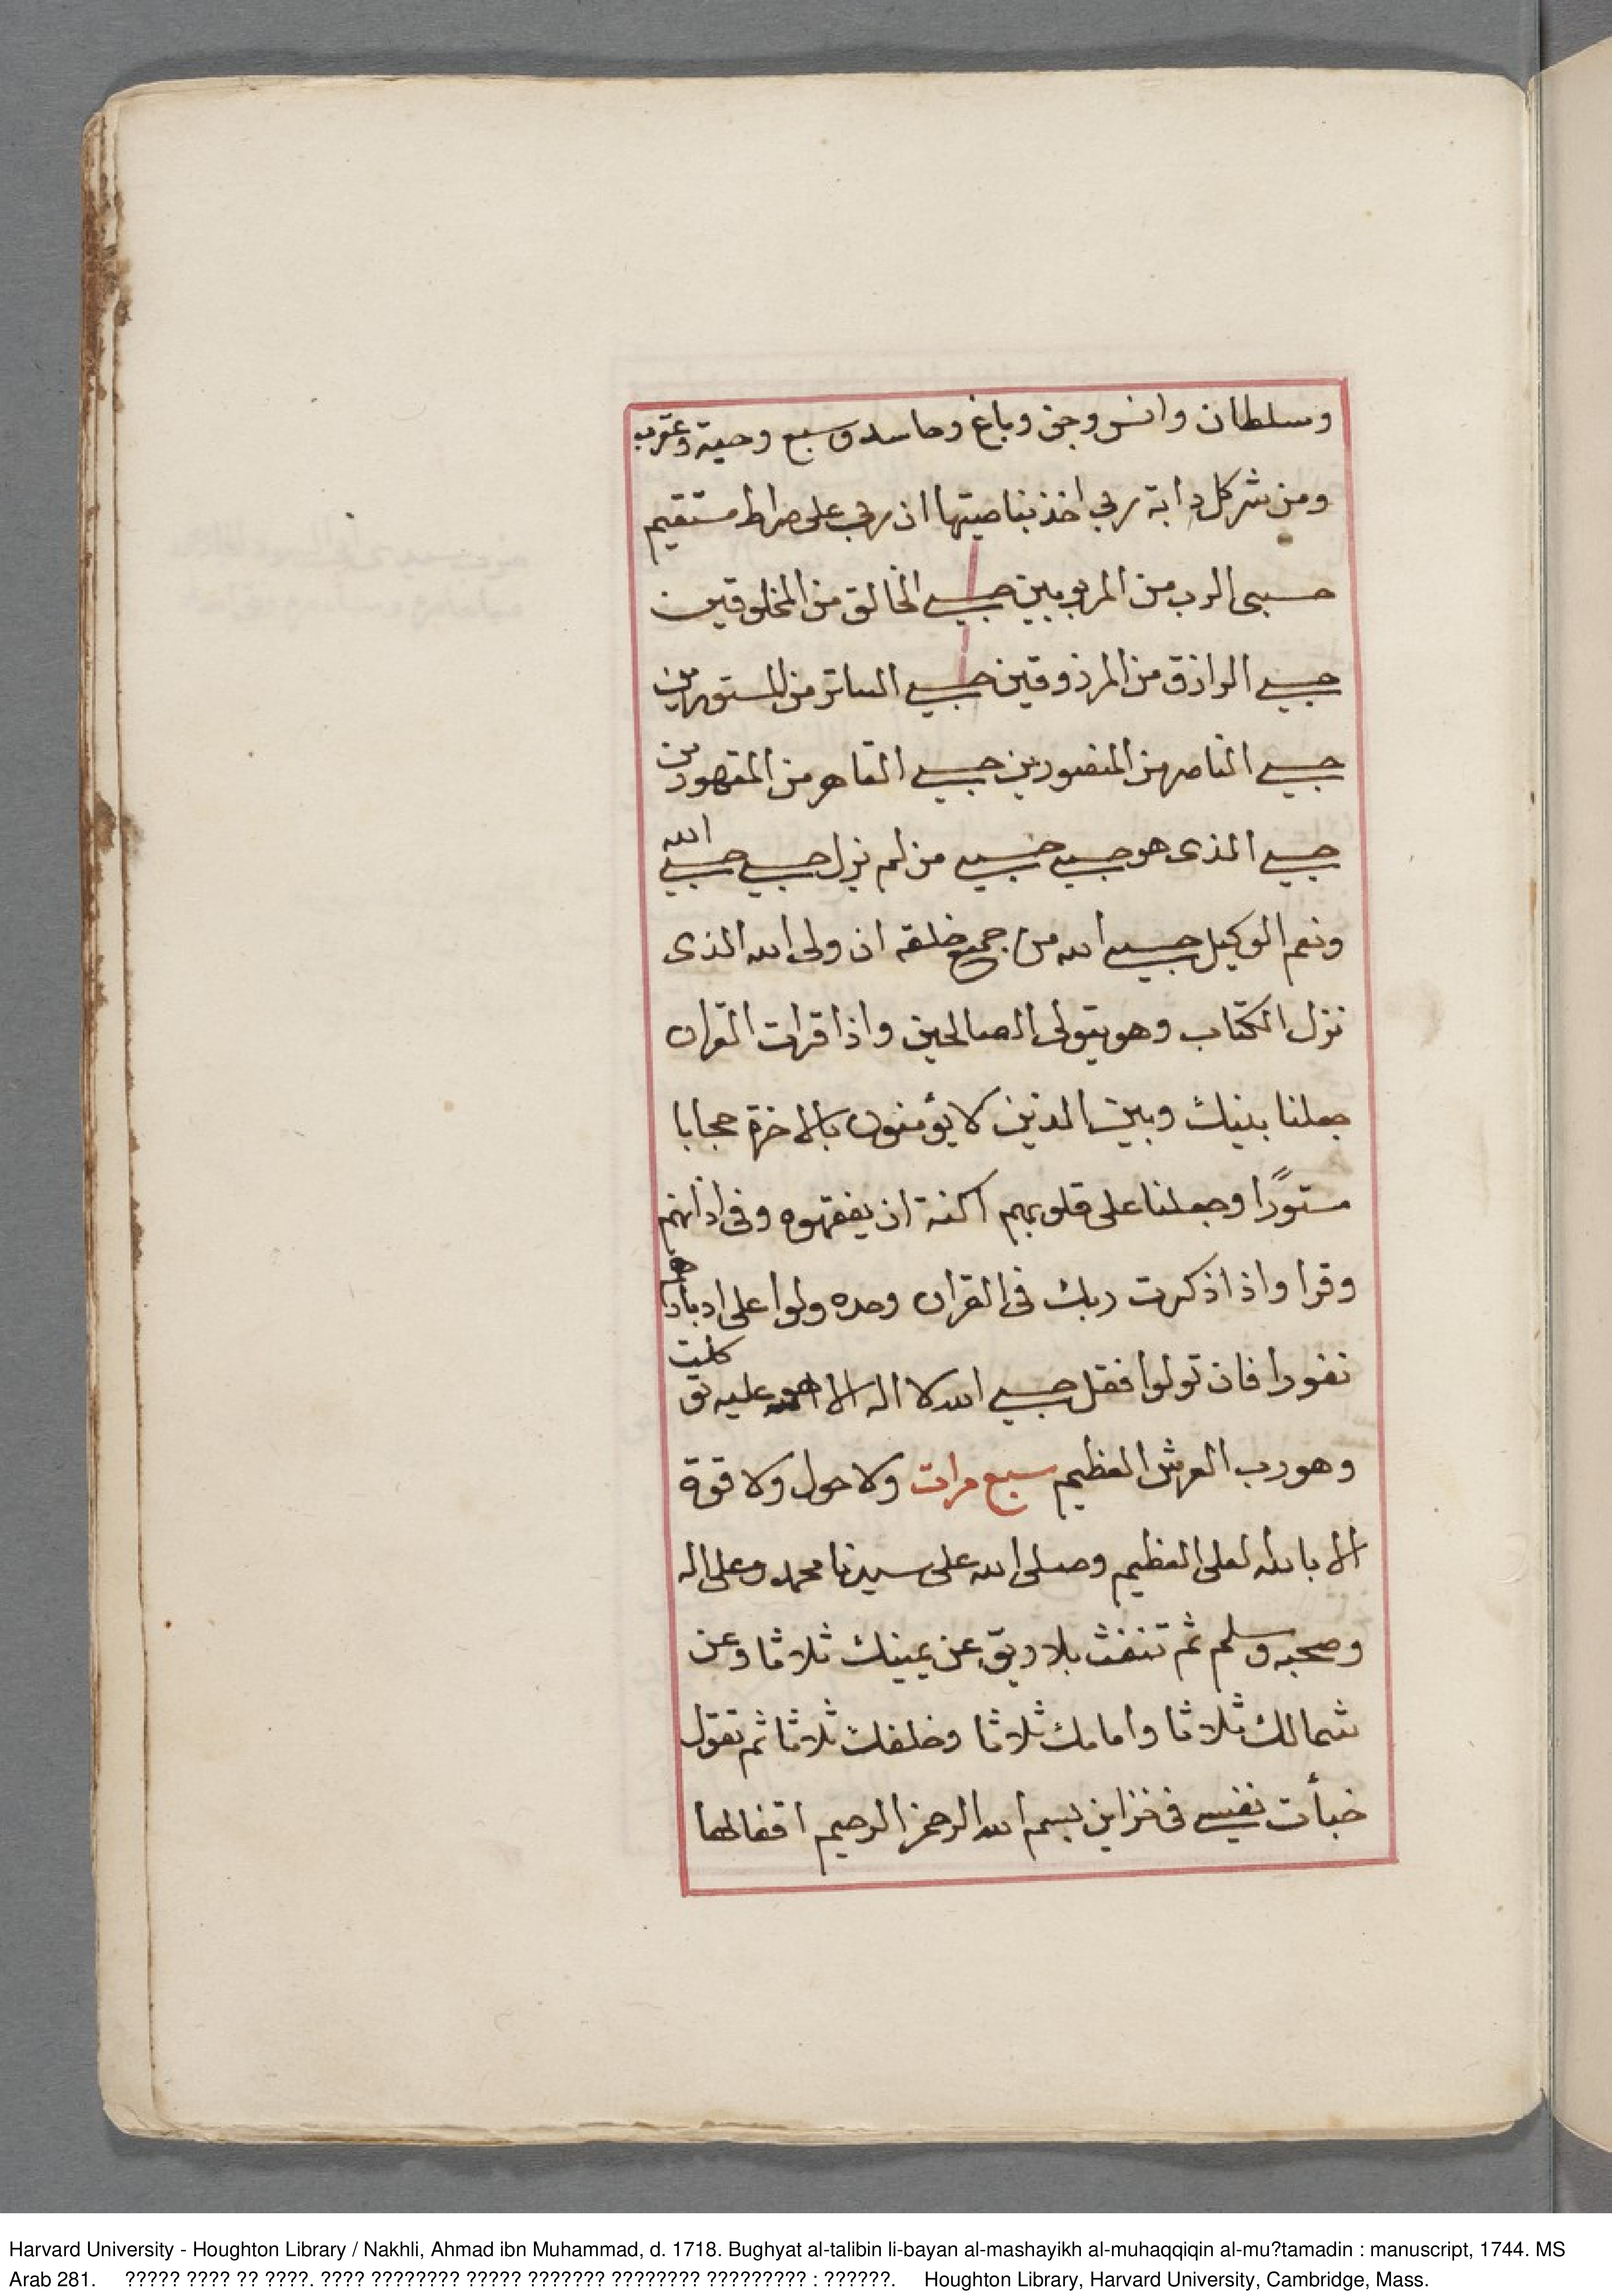 وسلطان وانس وجن وباغ وحاسد وسبع وحية وعقرب
ومن شر كل دابة ربي اخذ بناصيتها ان ربي على صراط مستقيم
حسبي الرب من المربوبين حسبي الخالق من المخلوقين
حسبي الرازق من المرزوقين حسبي الساتر من المستورين
حسبي الناصر من المنصورين حسبي القاهر من المقهورين
حسبي الذى هو حسبي حسبي من لم يزل حسبي حسبي الله
ونعم الوكيل حسبي الله من جميع خلقه ان ولى الله الذى
نزل الكتاب وهو يتولى الصالحين واذا قرات القران
جعلنا بينك وبين الذين لا يؤمنون بالاخرة حجابا
مستورًا وجعلنا على قلوبهم اكنة ان يفقهوه وفى اذانهم
وقرا واذا ذكرت ربك فى القران وحده ولوا على ادبارهم
نفورا فان تولوا فقل حسبي الله لا اله الا هو عليه توكلت
وهو رب العرش العظيم سبع مرات ولا حول ولا قوة
الا بالله لعلى العظيم وصلى الله على سيدنا محمد وعلى اله
وصحبه وسلم ثم تنفث بلا ريق عن يمينك ثلاثا وعن
شمالك ثلاثا وامامك ثلاثا وخلفك ثلاثا ثم تقول
خبأت نفسي فى خزاين بسم الله الرحمن الرحيم اقفالها
Harvard University - Houghton Library / Nakhli, Ahmad ibn Muhammad, d. 1718. Bughyat al-talibin li-bayan al-mashayikh al-muhaqqiqin al-mu?tamadin : manuscript, 1744. MS
Arab 281. ????? ???? ?? ????. ???? ???????? ????? ??????? ???????? ????????? : ??????. Houghton Library, Harvard University, Cambridge, Mass.